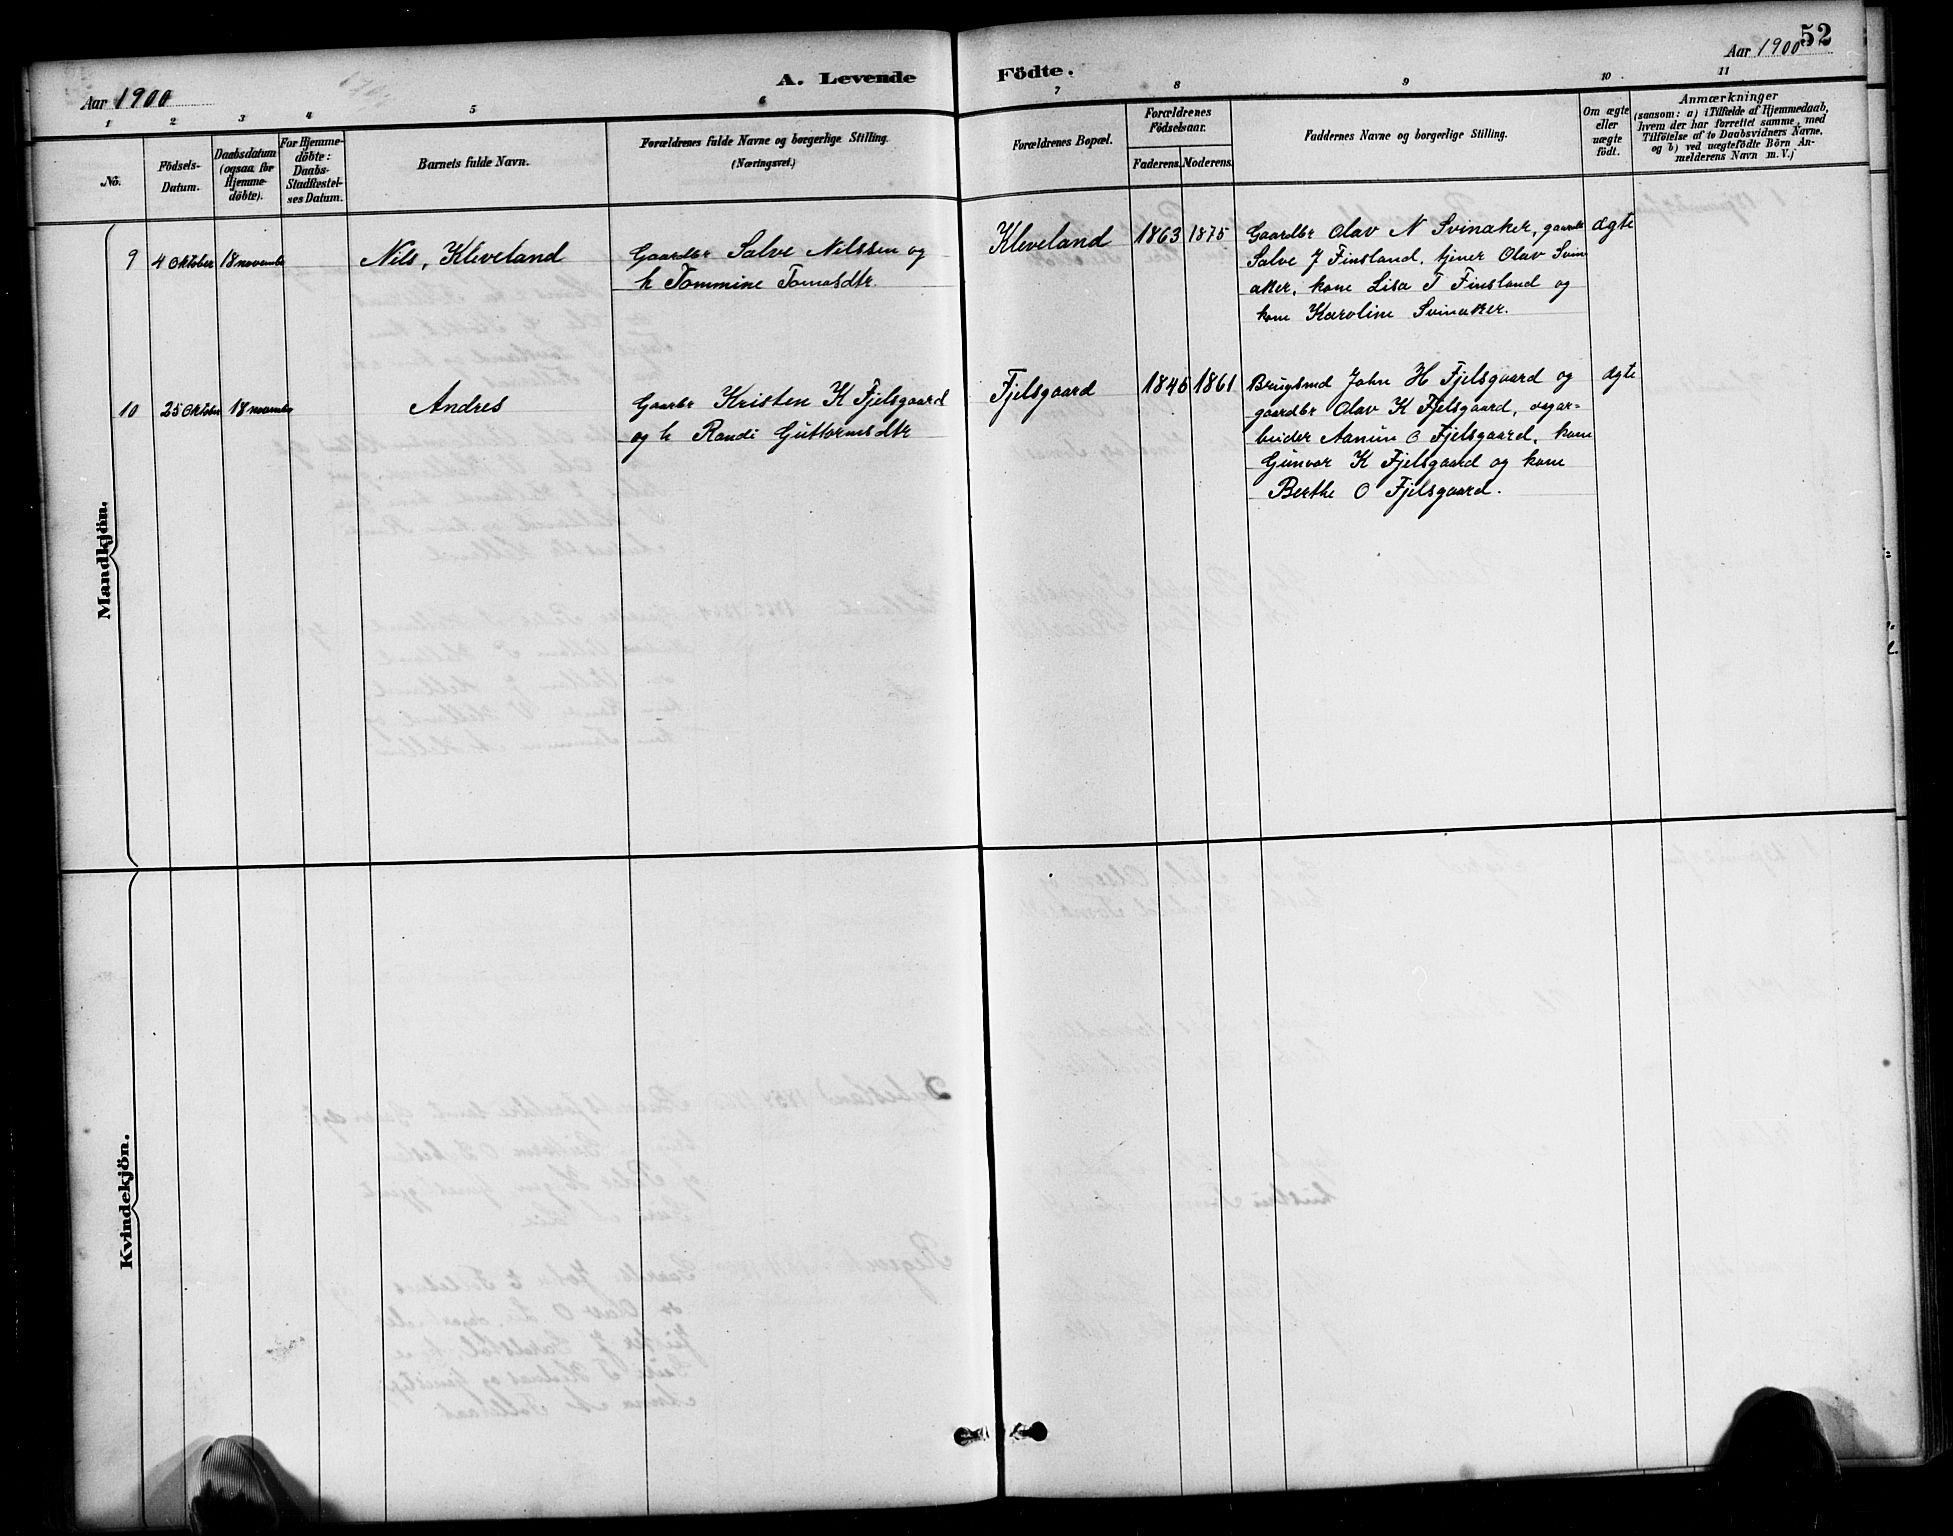 52
Aar 1900
A. Levende Födte.
Aar 1900
1 2 3 4 5 6 7 8 9 10 11
No.
Födsels-Datum.
Daabsdatum (ogsaa for Hjemme-döbte).
For Hjemme-döbte: Daabs-Stadfæstel-ses Datum.
Barnets fulde Navn.
Forældrenes fulde Navne og borgerlige Stilling.
(Næringsvei.)
Forældrenes Bopæl.
Forældrenes Födselsaar.
Faderens. Moderens.
Faddernes Navne og borgerlige Stilling.
Om ægte eller uægte födt.
Anmærkninger
(saasom: a) i Tilfælde af Hjemmedaab,
hvem der har forrettet samme, med
Tilföielse af to Daabsvidners Navne,
og b) ved uægtefödte Börn An-
melderens Navn m. V.)
Mandkjön.
9 4 Oktober 18 novembe Nils, Kleveland
Gaardbr Salve Nilssen og
h Tommine Tomasdtr.
Kleveland 1863 1875
Gaardbr Olav N Svinaker, gaardb
Salve J Finsland, tjener Olav Svin
aker, kone Lisa T Finsland og
kone Karoline Svinaker.
ægte
10 25 Oktober 18 novembe Andres
Gaarbr Kristen K Fjelsgaard
og h Randi Guttormsdtr
Fjelsgaard 1846 1861
Brugsmd John H Fjelsgaard og
gaardbr Olav K Fjelsgaard, dagar-
beider Aanun O Fjelsgaard, kone
Gunvor K Fjelsgaard og kone
Berthe O Fjelsgaard.
ægte
Kvindekjön.